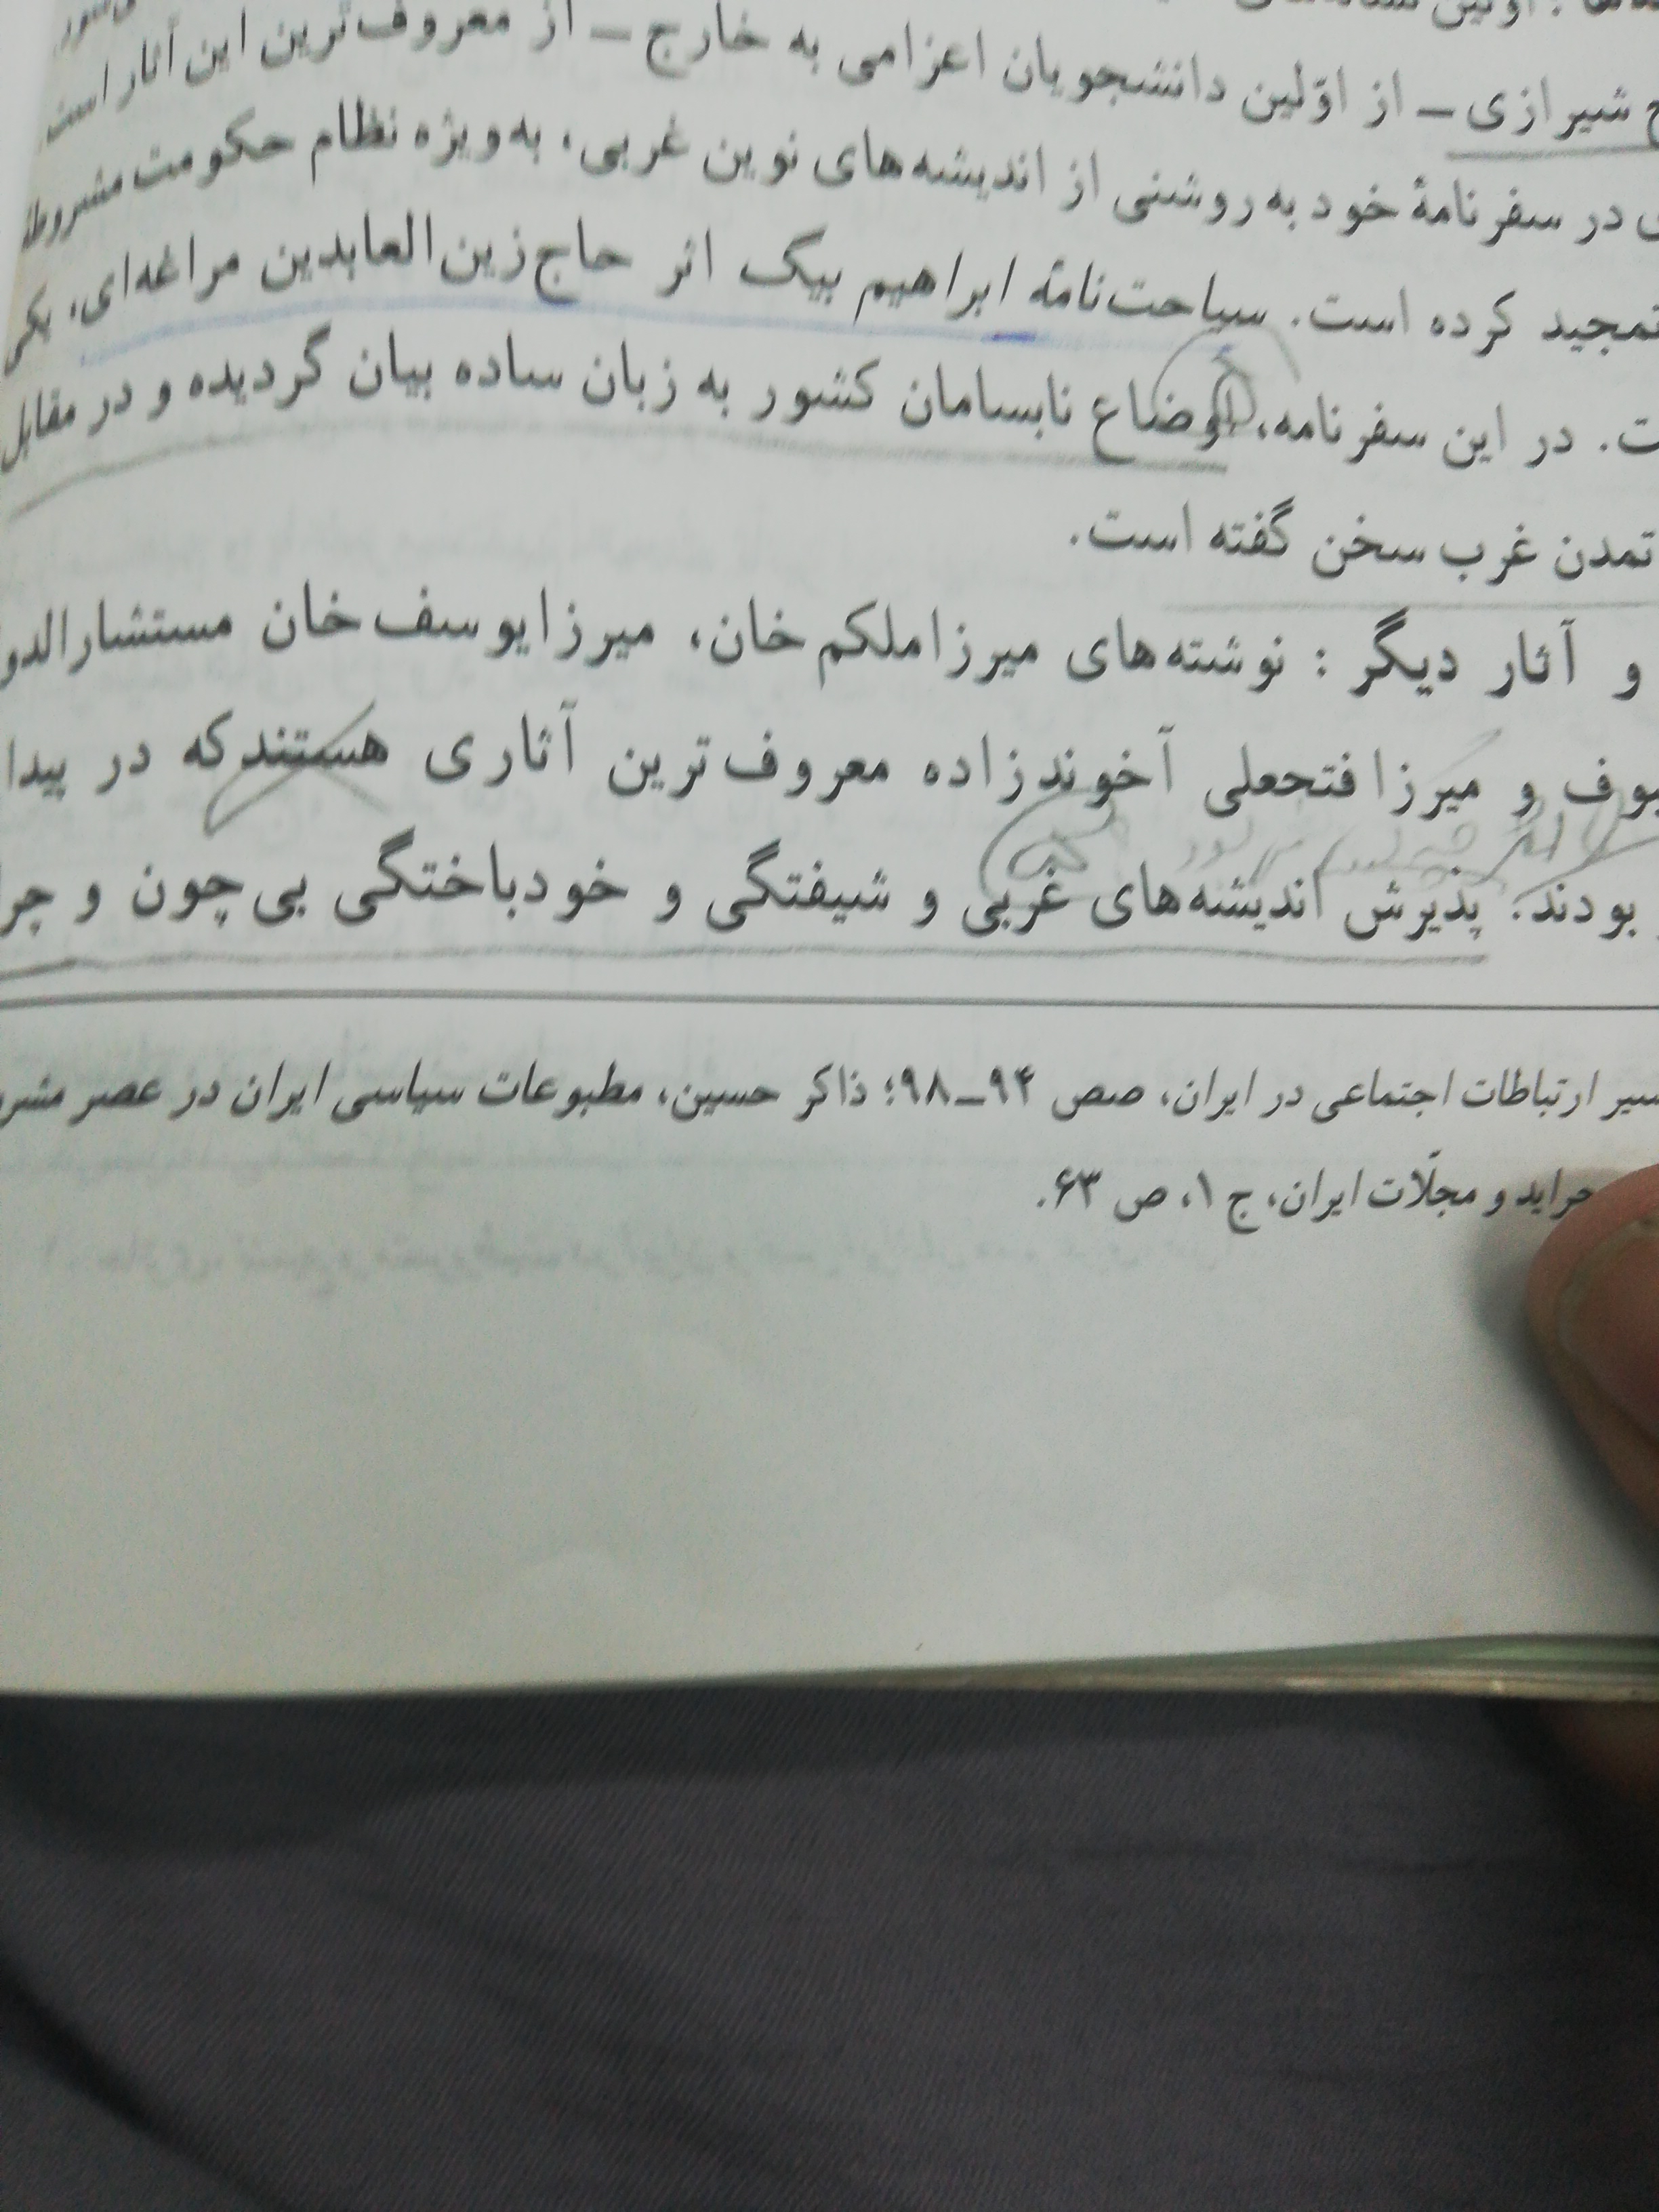 شیرازی ـ از اوّلین دانشجویان اعزامی به خارج ـ از معروف‌ترین این آثار است.
در سفرنامهٔ خود به روشنی از اندیشه‌های نوین غربی، به‌ویژه نظام حکومت مشروطهٔ
تمجید کرده است. سیاحت‌نامهٔ ابراهیم بیک اثر حاج زین‌العابدین مراغه‌ای،
ت. در این سفرنامه، اوضاع نابسامان کشور به زبان ساده بیان گردیده و در مقابل
تمدن غرب سخن گفته است.
و آثار دیگر : نوشته‌های میرزاملکم خان، میرزایوسف خان مستشارالدو
بوف و میرزا فتحعلی آخوندزاده معروف‌ترین آثاری هستند که در پیدا
بودند. پذیرش اندیشه‌های غربی و شیفتگی و خودباختگی بی‌چون و چر
سیر ارتباطات اجتماعی در ایران، صص ۹۴ـ۹۸؛ ذاکر حسین، مطبوعات سیاسی ایران در عصر مشر
جراید و مجلّات ایران، ج ۱، ص ۶۳.